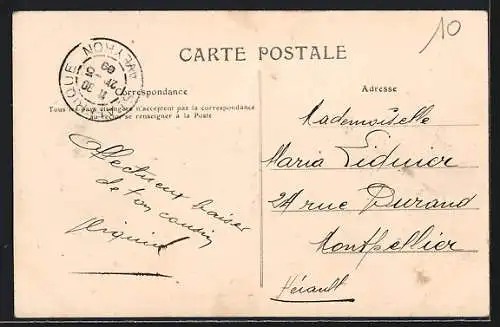 10
CARTE POSTALE
Correspondance
Tous les Pays étrangers n'acceptent pas la correspondance
au recto se renseigner à la Poste
Affectueux baiser
de ton cousin
Adresse
Mademoiselle
Maria
24 rue Durand
Montpellier
Hérault
AVEYRON
09